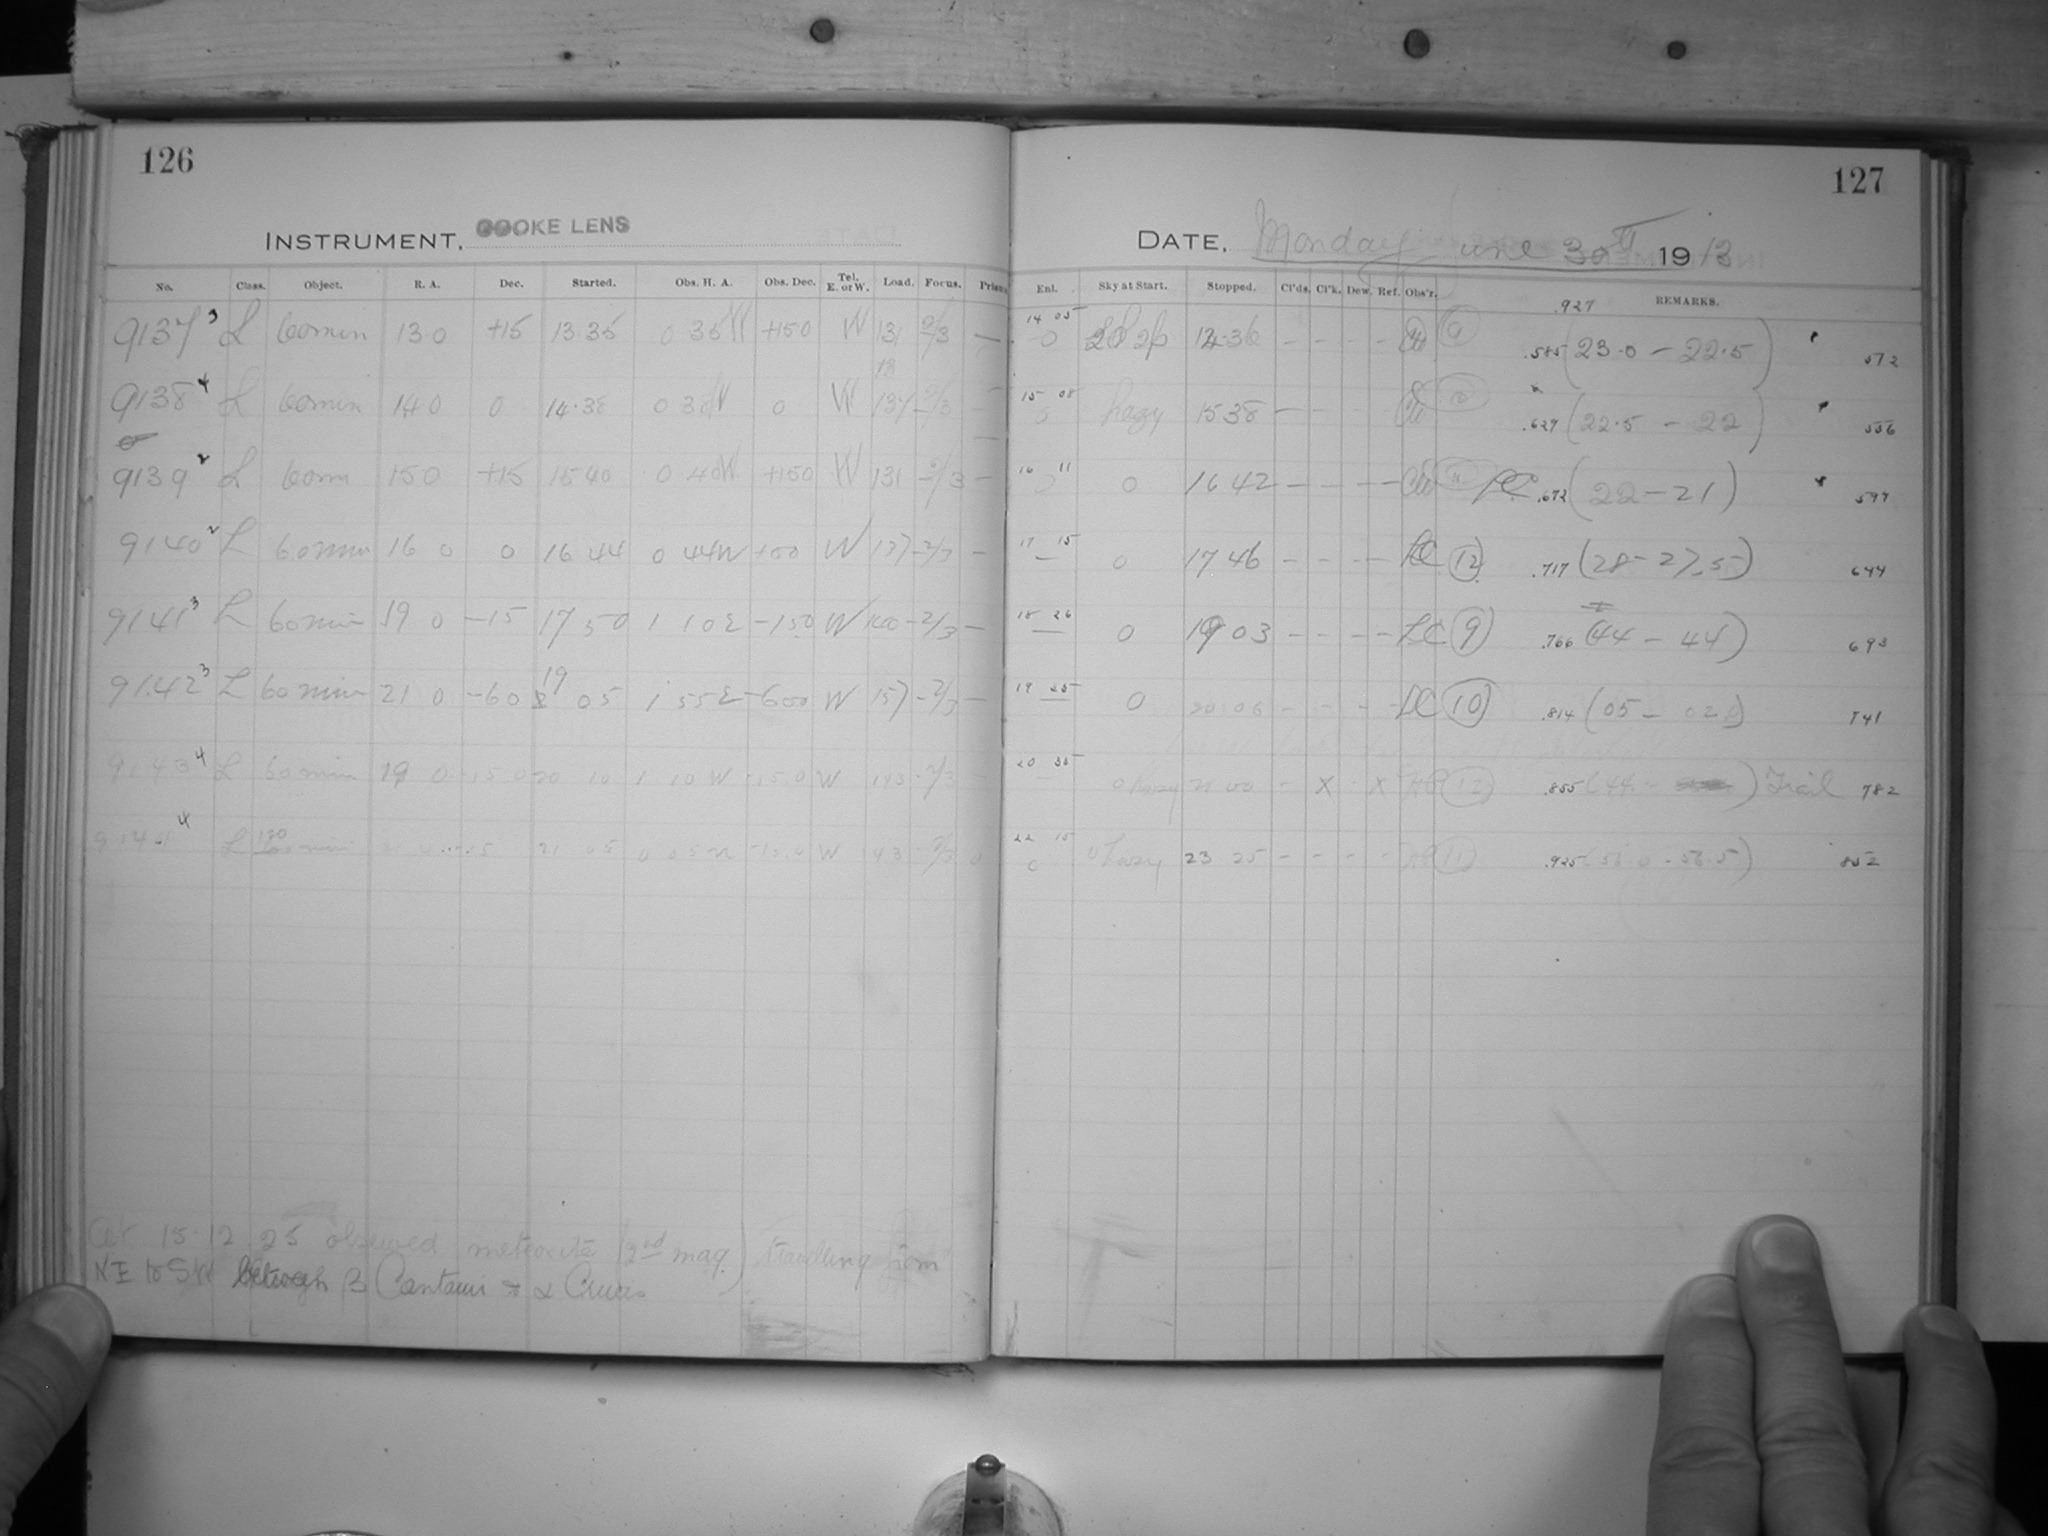 126
INSTRUMENT. COOKE LENS
No. Class. Object. R. A. Dec. Started. Obs. H. A. Obs. Dec. Tel. E. or W. Load. Focus. Prism
9137 3 L 60 min 13 0 +15 13 35 0 35 W +15 0 W 131 -2/3 —
9138 4 L 60 min 14 0 0 14.38 0 38 W 0 W 137 -2/3 —
9139 2 L 60 m 15 0 +15 15 40 0 40 W +15 0 W 131 -2/3 —
9140 2 L 60 min 16 0 0 16 44 0 44 W +00 W 137 -2/3 —
9141 3 L 60 min 19 0 -15 17 50 1 10 E -15 0 W 140 -2/3 —
9142 3 L 60 min 21 0 -60 19 05 1 55 E -60 0 W 157 -2/3 —
9143 4 L 60 min 19 0 -15 0 20 10 1 10 W -15.0 W 143 -2/3
4 L 120 min 21 05 W 143
observed meteorite (2nd mag.) travelling from
NE to SW between β Centauri & α Crucis
127
DATE. Monday June 30th 1913
Enl. Sky at Start. Stopped. Cl'ds. Cl'k. Dew. Ref. Obs'r. REMARKS.
.927
14 05 0 14.36 - - - - .585 (23.0 - 22.5) 572
15 08 0 hazy 15 38 - - - - .629 (22.5 - 22) 556
16 11 0 0 16 42 - - - - .672 (22 - 21) 599
17 15 — 0 17 46 - - - - LC 12 .717 (28 - 27.5) 644
18 26 — 0 19 03 - - - - LC 9 .766 (44 - 44) 693
19 25 — 0 20 06 - - - - LC 10 .814 (05 - 02) 741
20 35 0 hazy 21 00 - X - X 12 .855 (44 - ) Trail 782
22 15 0 0 hazy 23 25 - - - - 11 .925 (56.0 - 56.5) 852